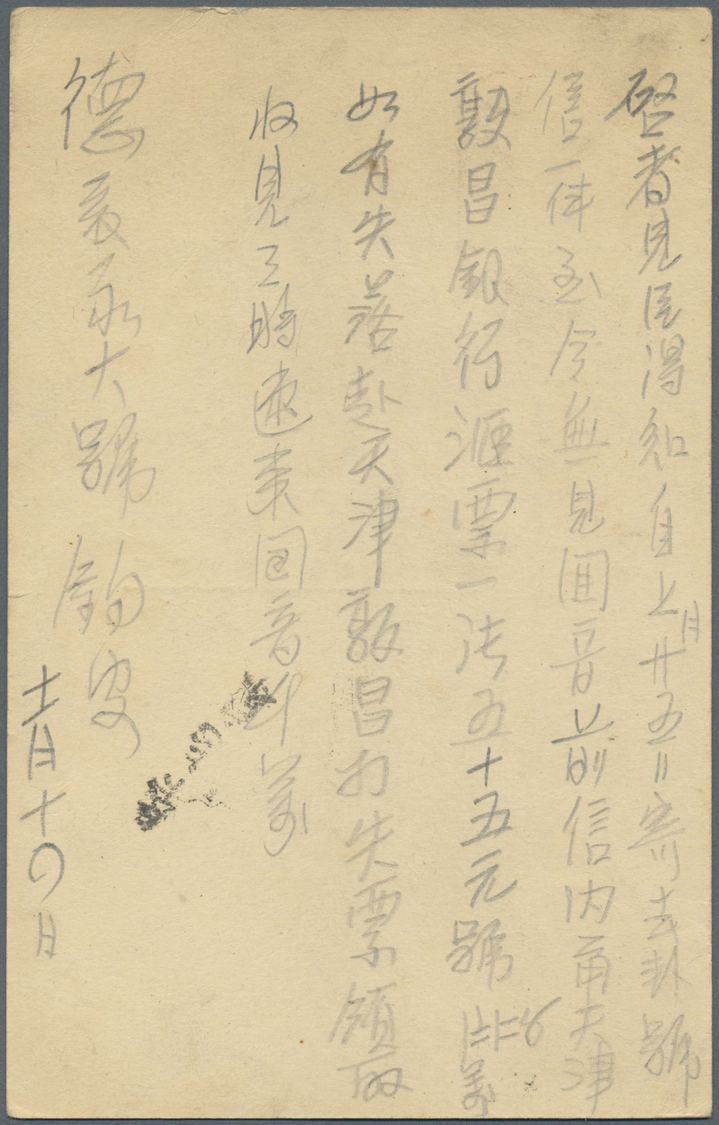 啓者見信得知自上月廿五日寄去卦號
信一件至今無見回音前信内有天津
敦昌銀行滙票一張五十五元號
如有失落赴天津敦昌打失票領取
收見之時速來回音千萬
德義永大號鈞安
十二月十四日